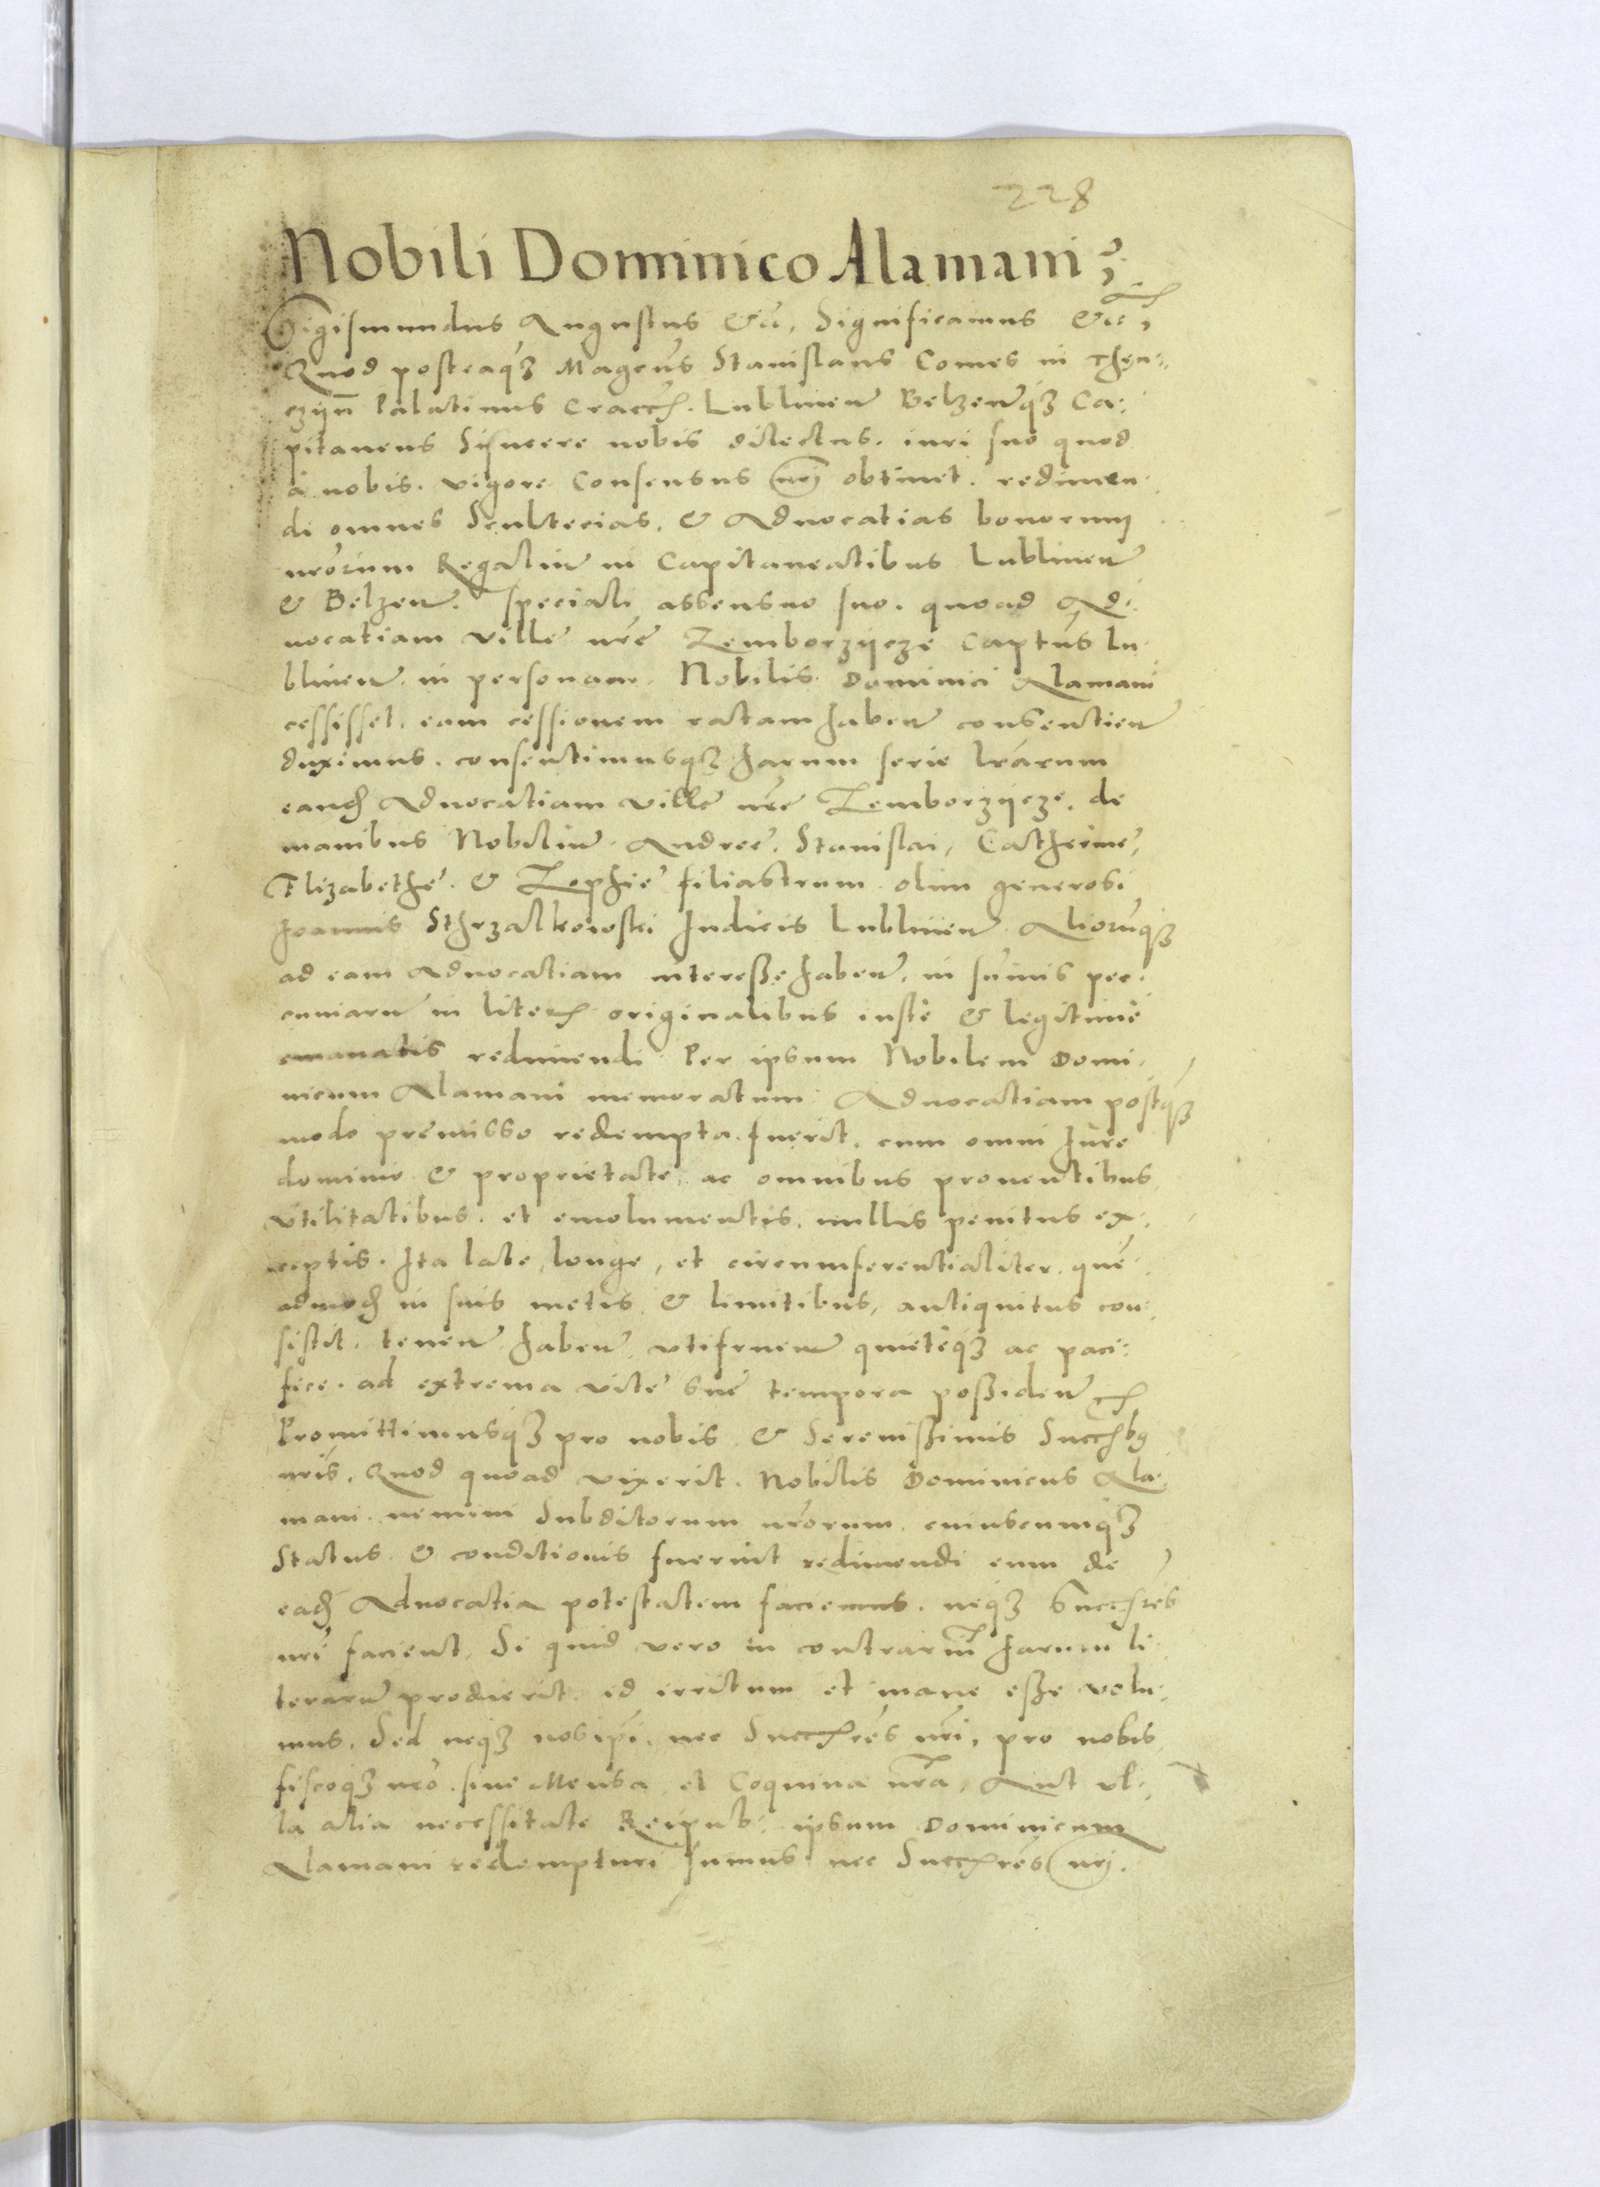 228
Nobili Dominico Alamani
Sigismundus Augustus &ct, Significamus &ct,
Quod posteaq3 Mag̃cus Stanislaus Comes in Then-
czyn̄ Palatinus Cracc̄. Lublinen̄ Belzen̄q3 Ca-
pitaneus Sijncere nobis dilectus. iuri suo quod
a nobis. vigore Consensus nr̄i obtinet. redimen-
di omnes Scultecias. & Aduocatias bonorum
nr̄orum Regaliu̅ in Capitaneatibus Lublinen̄
& Belzen̄. speciali assensuo suo. quoad Ad-
uocatiam ville nr̄e Zemborzijcze Captūs Lu-
blinen̄. in personam. Nobilis Dominici Alamani
cessisset. eam cessionem ratam haben̄ consentien̄
duximus. consentimusq3 harum serie lr̄arum
eand̄ Aduocatiam ville nr̄e Zemborzijcze, de
manibus Nobiliu̅ Andree, Stanislai, Catherine,
Elizabethe. & Zophie filiastrum olim generosi
Joannis Sthrzalkowski Judicis Lublinen̄ Alioru̅q3
ad eam Aduocatiam interesse haben̄. in sum̄is pec-
cuniaru̅ in liter̄ originalibus iuste & legitime
emanatis redimendi Per ipsum Nobilem Domi-
nicum Alamani memoratum. Aduocatiam postq̄3
modo premisso redempta fuerit. cum omni Jure
dominio & proprietate. ac omnibus prouentibus
vtilitatibus. et emolumentis. nullis penitus ex-
ceptis. Ita late, longe, et circumferentialiter. que̅-
admod̄ in suis metis & limitibus, antiquitus con-
sistit. tenen̄ haben̄. vtifruen̄ quieteq3 ac paci-
fice. ad extrema vite sue tempora possiden̄
Promittimusq3 pro nobis & Serenissimis Succ̄b9
nr̄is. Quod quoad vixerit. Nobilis Dominicus Ala-
mani. nemini Subditorum nr̄orum. cuiuscumq3
Status & conditionis fuerint redimendi eum de
ead̄ Aduocatia potestatem faciemus. neq3 Succ̄res
nr̄i facient. Si quid vero in contrariu̅ harum li-
teraru̅ prodierit. id irritum et inane esse volu-
mus. Sed neq3 nos ip̄i. nec Succ̄res nr̄i, pro nobis
fiscoq3 nr̄o. siue Mensa et Coquina nr̄a, Aut vl-
la alia necessitate Reipub: ipsum Dominicum
Alamani redempturi sumus nec Succ̄res nr̄i.